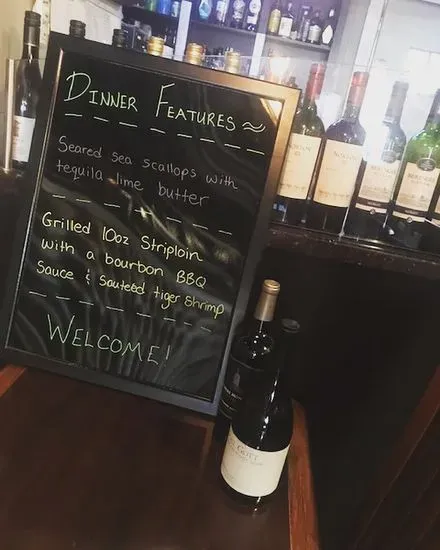 DINNER FEATURES ≈
Seared sea scallops with
tequila lime butter
Grilled 10oz Striploin
with a bourbon BBQ
Sauce & Sauteed tiger Shrimp
WELCOME!
NORTON
NORTON
BERINGER
BERINGER